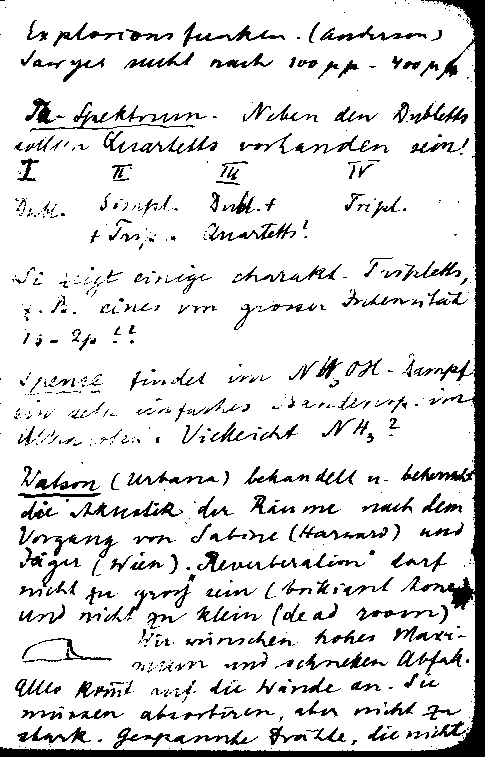 Explosionsfunken. (Anderson)
Sawyer sucht nach 100 μμ - 400 μμ
Spektrum. Neben den Dubletts
sollten Quartetts vorhanden sein!
I II III IV
Dubl. Simpl. Dubl. + Tripl.
+ Trip. Quartetts!
Si zeigt einige charakt. Tripletts,
z. B. eines von grosser Intensität
1s - 2p !!
Spence findet im NH₃OH-Dampf
ein sehr einfaches Bandensp. im
Vielleicht NH₃?
Watson (Urbana) behandelt u. beherrscht
die Akustik der Räume nach dem
Vorgang von Sabine (Harward) und
Jäger (Wien). „Reverberation" darf
nicht zu gross sein (brilliant tone)
und nicht zu klein (dead room)
Wir wünschen hohes Maxi-
mum und schnellen Abfall.
Alles kommt auf die Wände an. Sie
müssen absorbiren, aber nicht zu
stark. Gespannte Drähte, die nicht